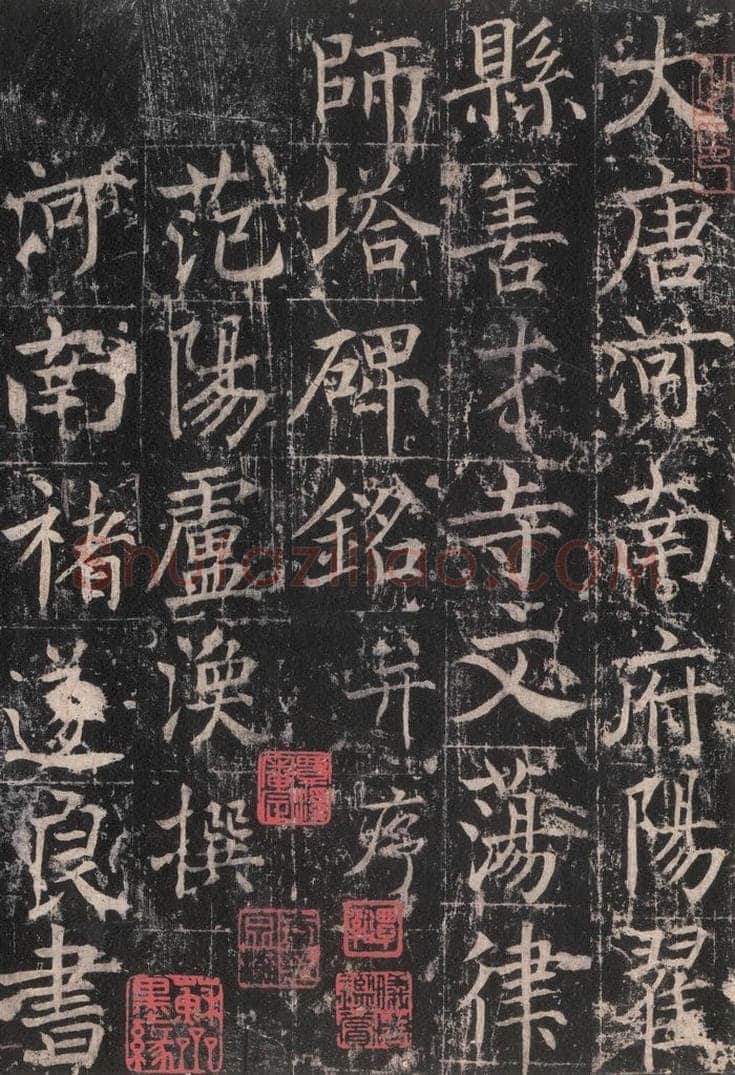 大唐河南府陽翟
縣善才寺文蕩律
師塔碑銘并序
范陽盧渙撰
河南褚遂良書
蘇齋墨緣
shufaziliao.com